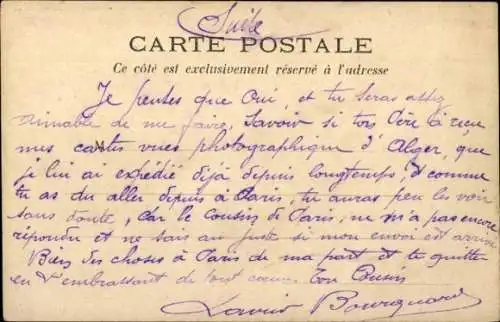 Suite
CARTE POSTALE
Ce côté est exclusivement réservé à l'adresse
Je penses que Oui, et tu seras assez
aimable de me faire savoir si ton Père a reçu
mes cartes vues photographique d'Alger, que
je lui ai expédié déjà depuis longtemps, et comme
tu as du aller depuis à Paris, tu auras peu les voir
sans doute, Car le Cousin de Paris, ne m'a pas encore
répondu et ne sais au juste si mon envoi est arrivé
Bien des choses à Paris de ma part et te quitte
en t'embrassant de tout cœur. Ton Cousin